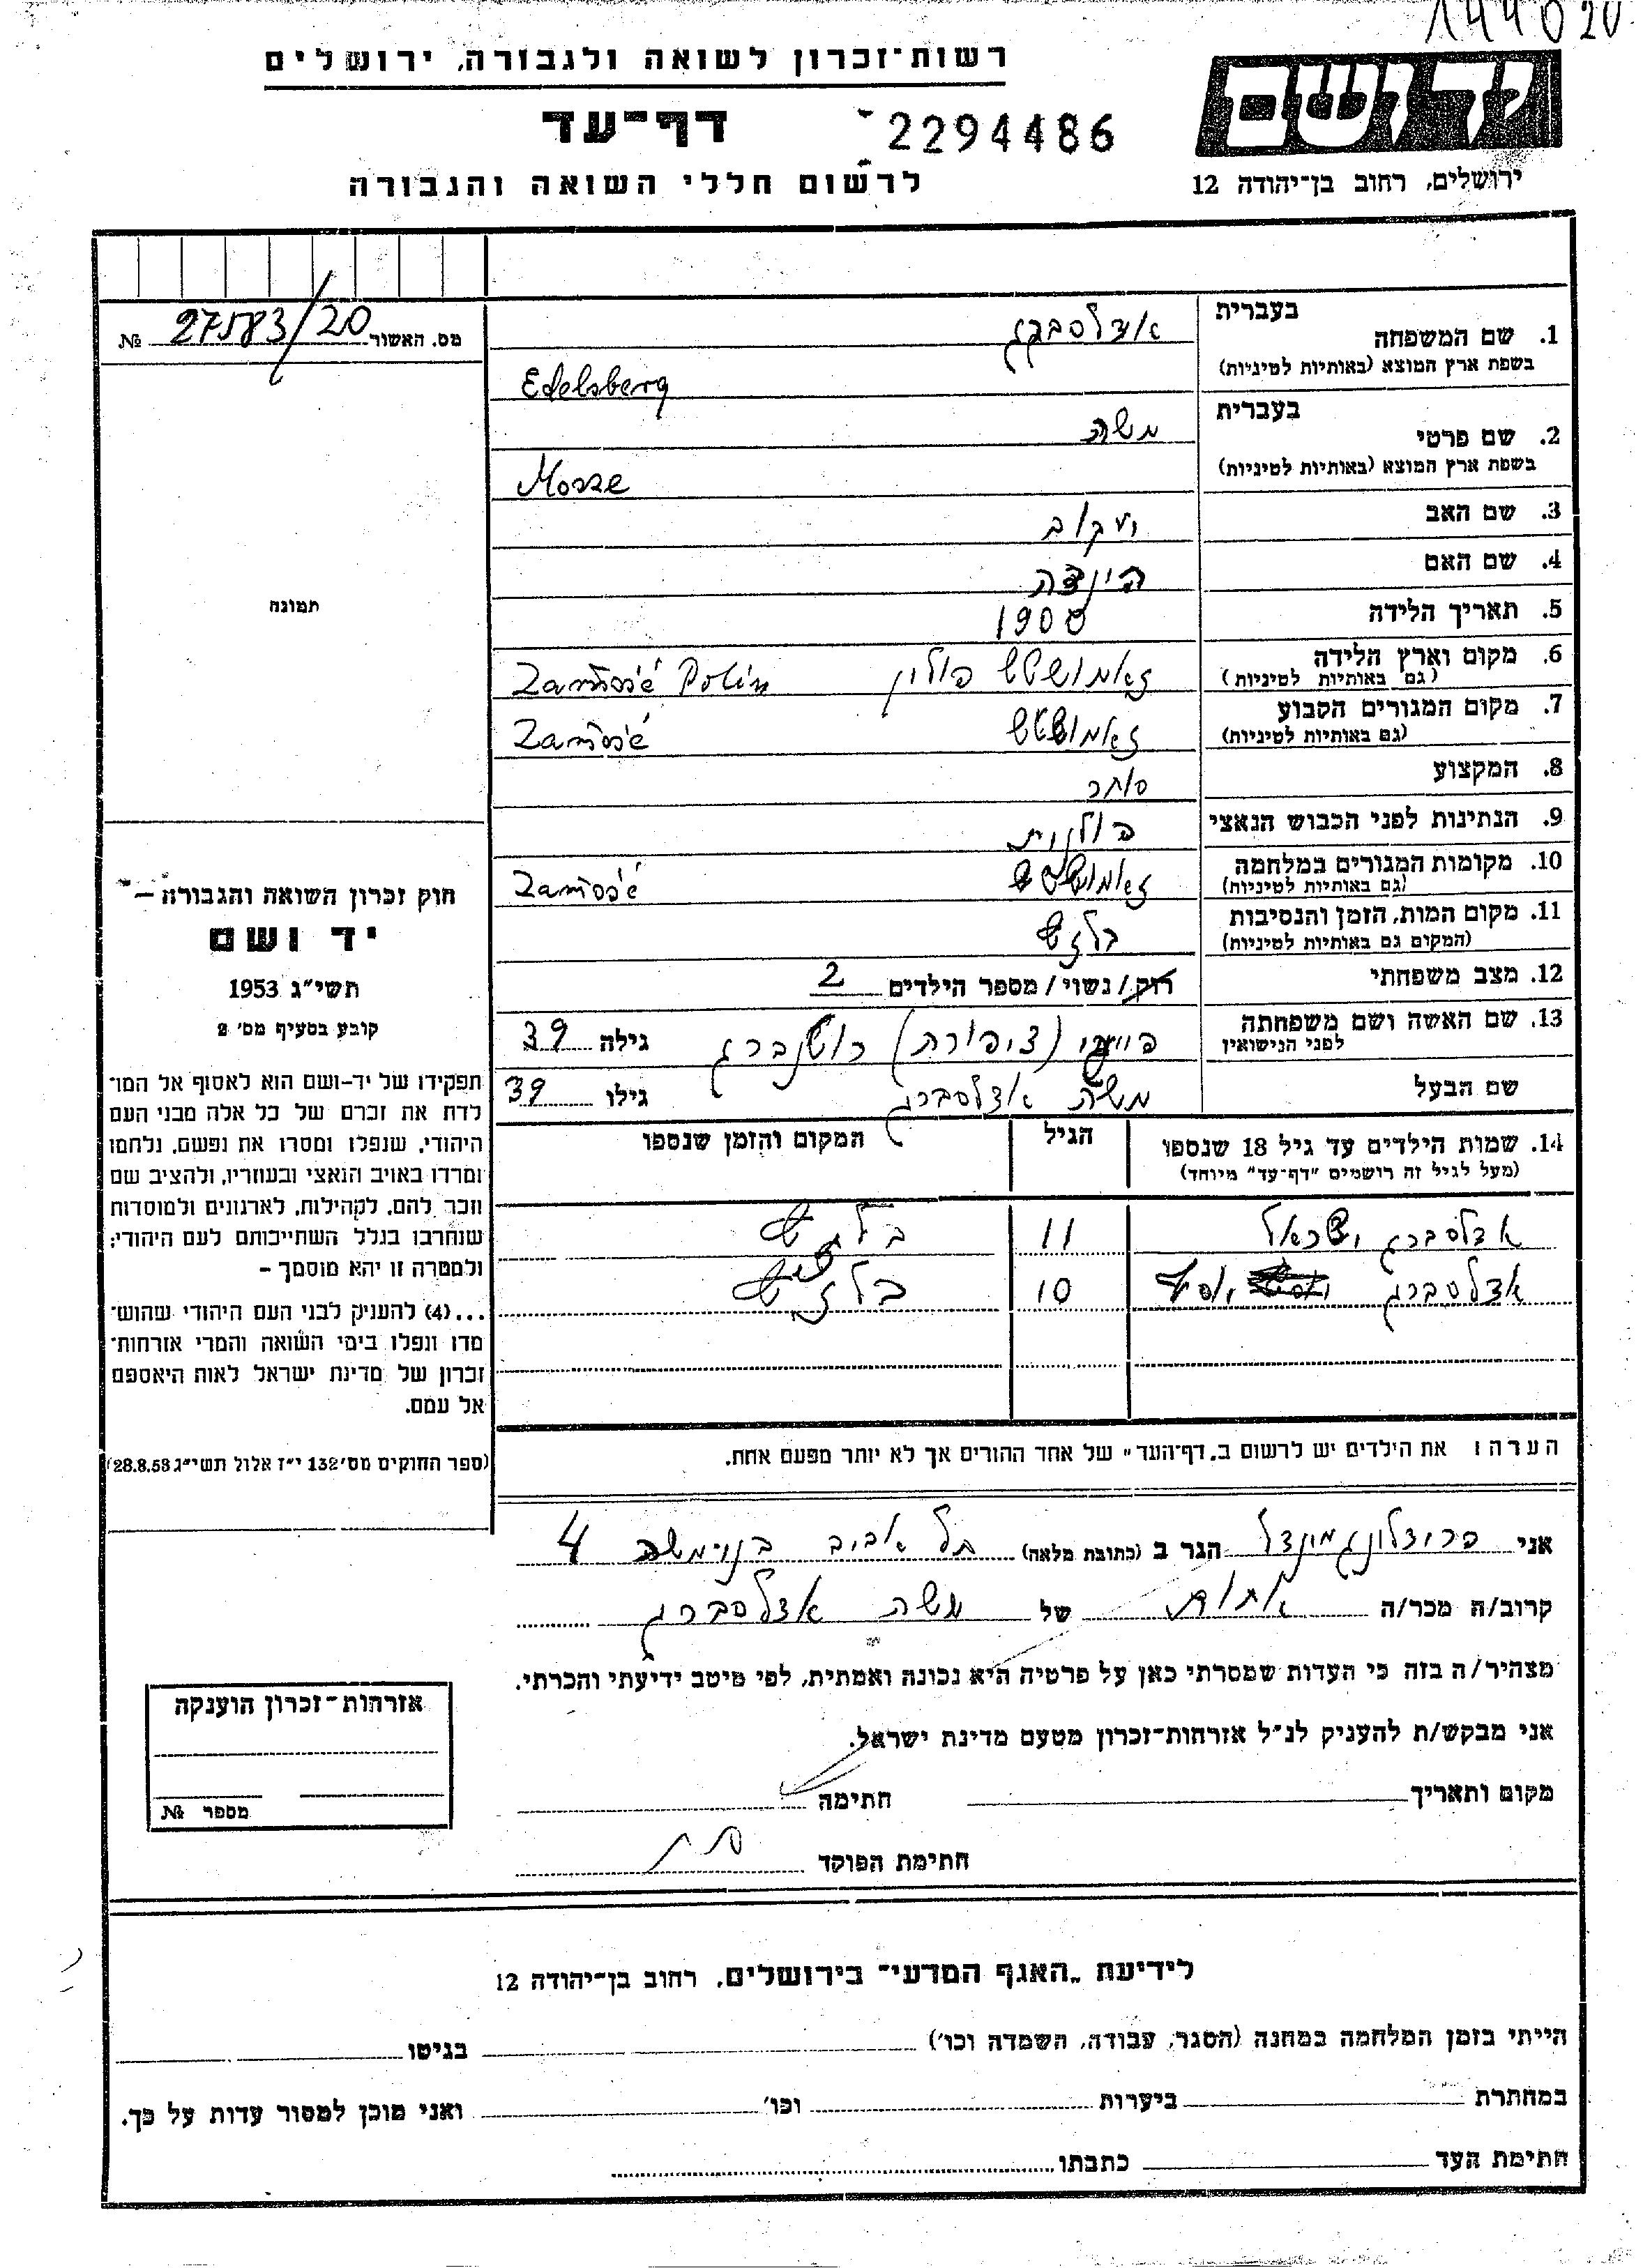 144020
רשות־זכרון לשואה ולגבורה, ירושלים
יד ושם
דף־עד
2294486
לרשום חללי השואה והגבורה
ירושלים, רחוב בן־יהודה 12
מס. האשור 27583/20 №
1. שם המשפחה בעברית אדלסברג
בשפת ארץ המוצא (באותיות לטיניות) Edelsberg
2. שם פרטי בעברית משה
בשפת ארץ המוצא (באותיות לטיניות) Mosze
3. שם האב יעקוב
4. שם האם הינדה
5. תאריך הלידה 1908
6. מקום וארץ הלידה זאמושטש פולין Zamość Polin
(גם באותיות לטיניות)
7. מקום המגורים הקבוע זאמושטש Zamość
(גם באותיות לטיניות)
8. המקצוע סוחר
9. הנתינות לפני הכבוש הנאצי פולנית
10. מקומות המגורים במלחמה זאמושטש Zamość
(גם באותיות לטיניות)
11. מקום המות, הזמן והנסיבות בלזש
(המקום גם באותיות לטיניות)
12. מצב משפחתי רוק/נשוי/מספר הילדים 2
13. שם האשה ושם משפחתה (ציפורה) גילה 39
לפני הנישואין
שם הבעל משה אדלסברג גילו 39
14. שמות הילדים עד גיל 18 שנספו הגיל המקום והזמן שנספו
(מעל לגיל זה רושמים "דף־עד" מיוחד)
אדלסברג ישראל 11 בלזש
אדלסברג 10 בלזש
הערה: את הילדים יש לרשום ב„דף־העד" של אחד ההורים אך לא יותר מפעם אחת.
תמונה
חוק זכרון השואה והגבורה —
יד ושם
תשי"ג 1953
קובע בסעיף מס' 2
תפקידו של יד-ושם הוא לאסוף אל המו־
לדת את זכרם של כל אלה מבני העם
היהודי, שנפלו ומסרו את נפשם, נלחמו
ומרדו באויב הנאצי ובעוזריו, ולהציב שם
וזכר להם, לקהילות, לארגונים ולמוסדות
שנחרבו בגלל השתייכותם לעם היהודי;
ולמטרה זו יהא מוסמך –
...(4) להעניק לבני העם היהודי שהוש־
מדו ונפלו בימי השואה והמרי אזרחות־
זכרון של מדינת ישראל לאות היאספם
אל עמם.
(ספר החוקים מס' 132 י"ז אלול תשי"ג 28.8.53)
אני הגר ב (כתובת מלאה) תל אביב 4
קרוב/ה מכר/ה אחות של משה אדלסברג
מצהיר/ה בזה כי העדות שמסרתי כאן על פרטיה היא נכונה ואמתית, לפי מיטב ידיעתי והכרתי.
אני מבקש/ת להעניק לנ"ל אזרחות־זכרון מטעם מדינת ישראל.
מקום ותאריך חתימה
חתימת הפוקד
אזרחות־זכרון הוענקה
מספר №
לידיעת „האגף המדעי־ בירושלים, רחוב בן־יהודה 12
הייתי בזמן המלחמה במחנה (הסגר, עבודה, השמדה וכו') בגיטו
במחתרת ביערות וכו' ואני מוכן למסור עדות על כך.
חתימת העד כתבתו